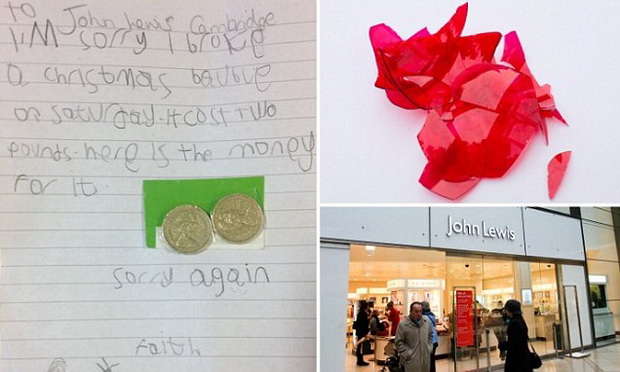 to John Lewis Cambridge
I'M sorry I broke
a christmas bauble
on saturday. It cost two
pounds. here is the money
for it.
sorry again
Faith
John Lewis